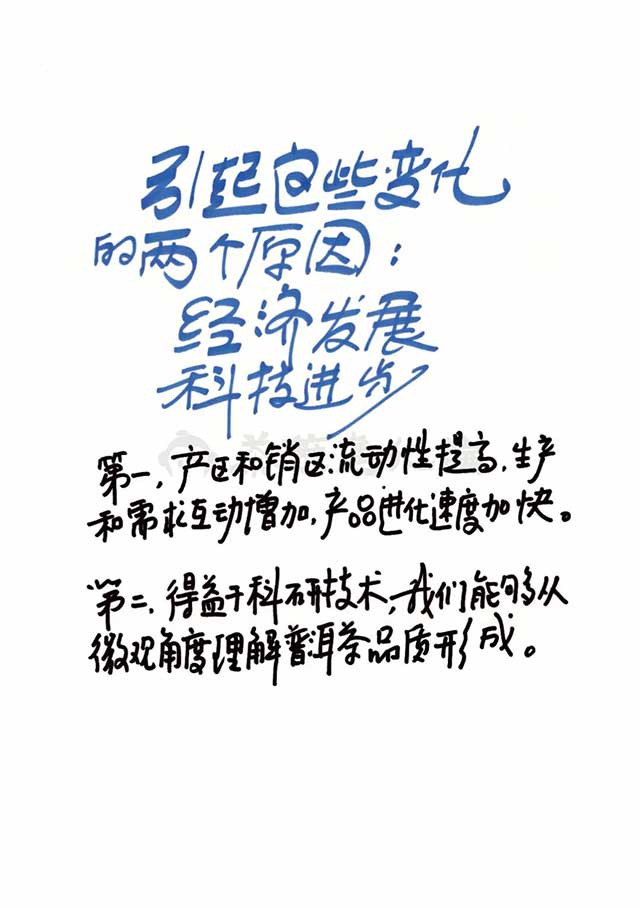 引起这些变化
的两个原因：
经济发展
科技进步
第一，产区和销区流动性提高，生产
和需求互动增加，产品进化速度加快。
第二，得益于科研技术，我们能够从
微观角度理解普洱茶品质形成。